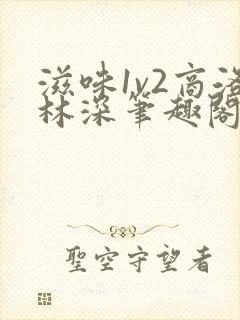 滋味1v2高洛
林深笔趣阁
聖空守望者